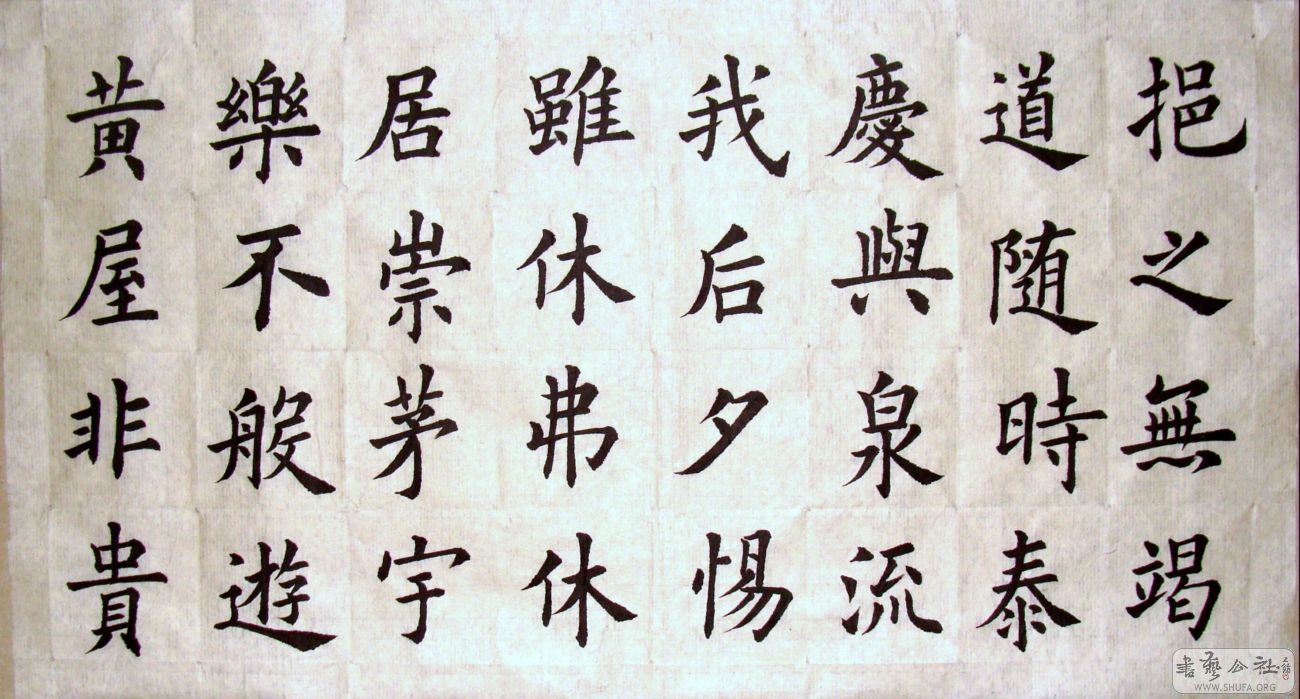 挹之無竭
道随時泰
慶與泉流
我后夕惕
雖休弗休
居崇茅宇
樂不般遊
黄屋非貴
書藝公社
WWW.SHUFA.ORG